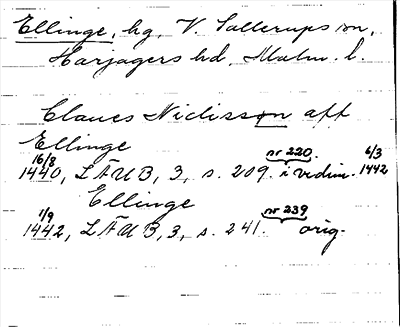 Ellinge, hg, V. Sallerups sn,
Harjagers hd, Malm. l.
Claues Niclisson aff
Ellinge
16/8 1440, LÄUB, 3, s. 209. nr 220. i vidim. 6/3 1442
Ellinge
1/9 1442, LÄUB, 3, s. 241. nr 239 orig.